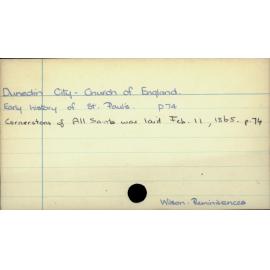 Dunedin City - Church of England.
Early history of St. Paul's. p74
Cornerstone of All Saints was laid Feb. 11, 1865. p.74
Wilson - Reminiscences